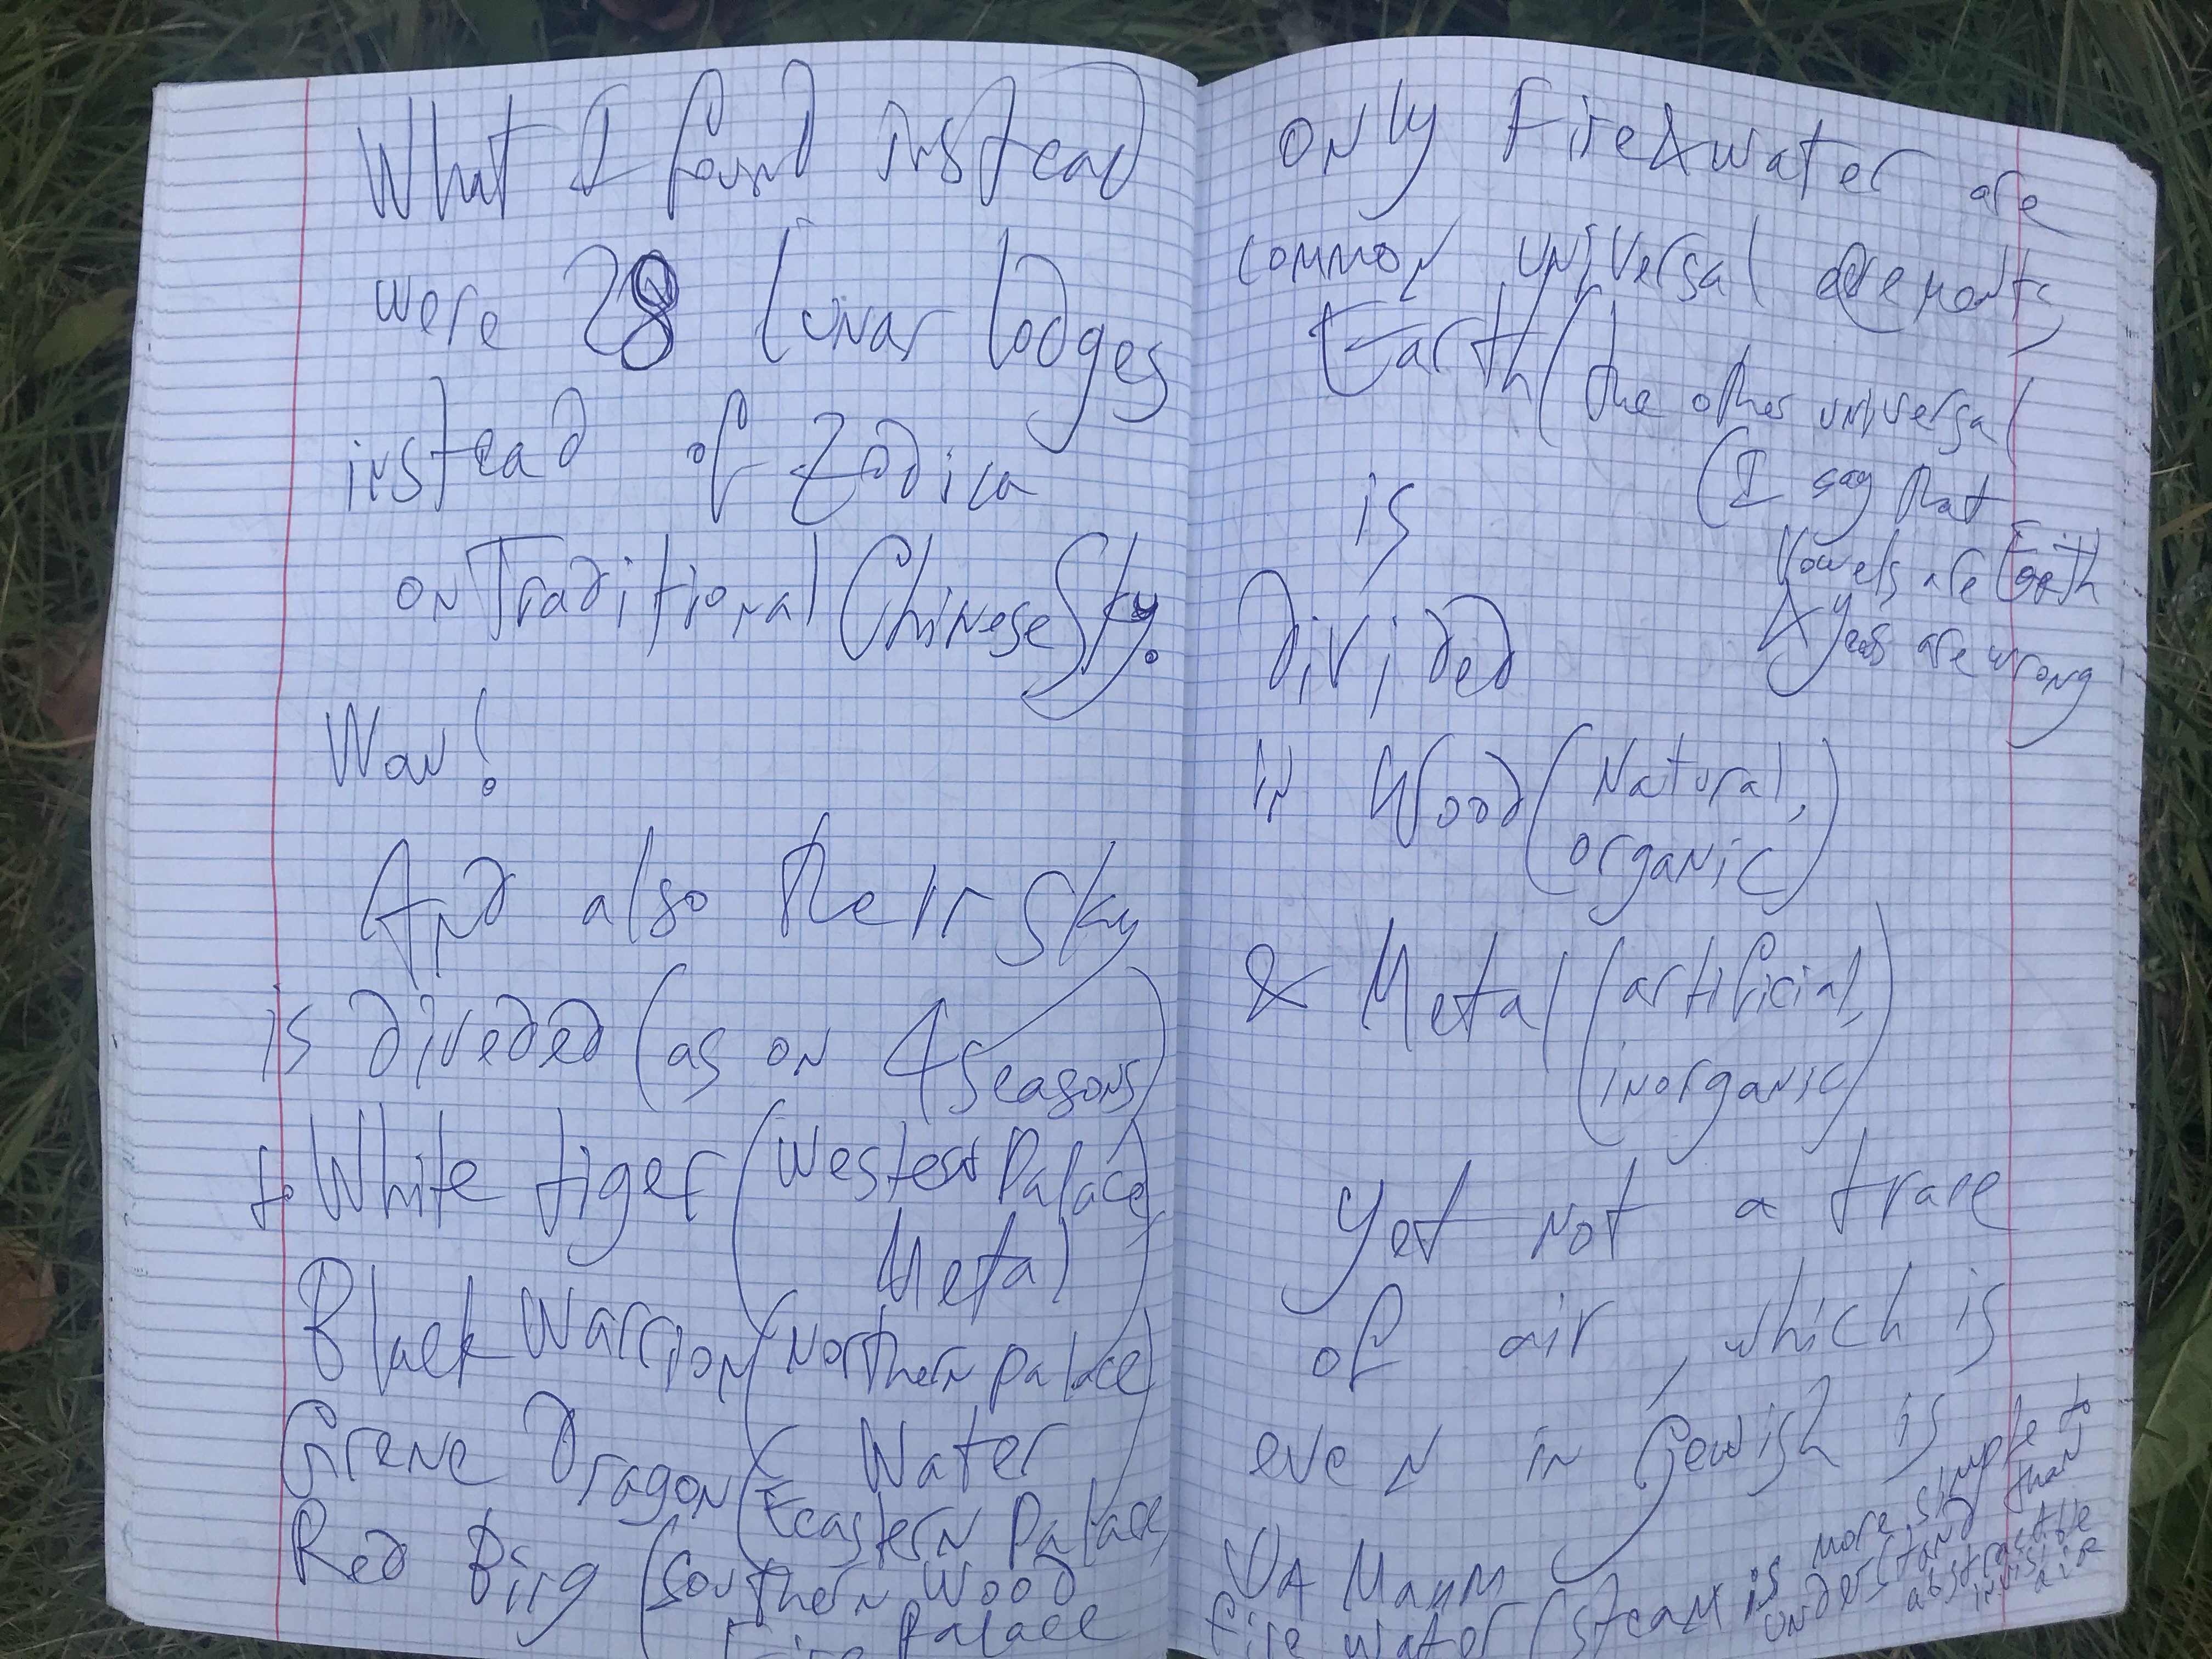 What I found instead
were 28 lunar lodges
instead of Zodiac
on Traditional (Chinese Sky.
Way.
And also their sky
is divided (as on 4 seasons)
to White tiger (Western Palace
Metal)
Black Warrion (Northern palace)
(Water
Grene Dragon (Eastern Palace,
Wood
Red Bird (Southern
palace
ONLY fire & water are
common universal elements
Earth (the other universal
(I say that Earth
is
Vowels are
& yeas are wrong
Divided
in Wood (Natural,
organic)
& Metal (artificial,
inorganic)
Yet not a trace
of air, which is
even in Jewish is simple to
VA Maym more than
fire water (steam is understandable